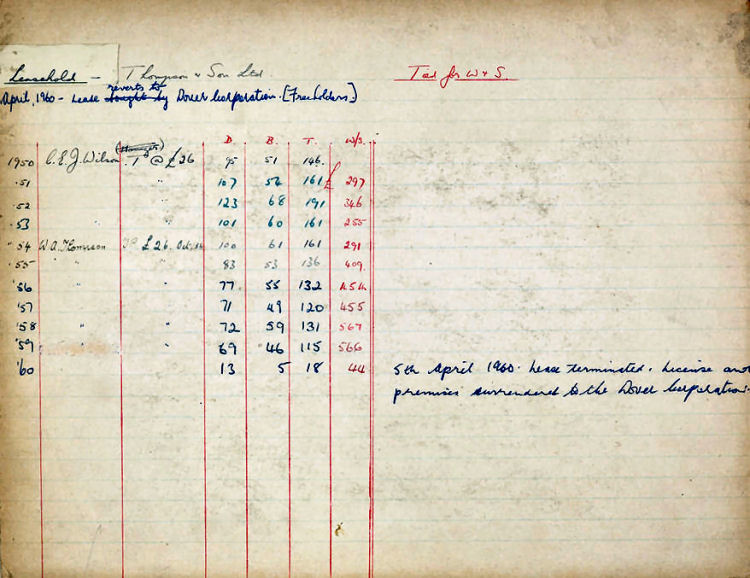 Leasehold - Thompson & Son Ltd.
Tied for W & S.
reverts to
April, 1960 - Lease bought by Dover Corporation. [Freeholders.]
D. B. T. W/S.
(Manager)
1950 C.E.J. Wilson. T @ £26 95 51 146.
'51 " 107 54 161 £ 297
'52 " 123 68 191 346
'53 " 101 60 161 255
'54 W.A. Thomson £26. Oct/54 100 61 161 291
'55 " " 83 53 136 409.
'56 " " 77 55 132 454
'57 " " 71 49 120 455
'58 " " 72 59 131 567
'59 " " 69 46 115 566
'60 13 5 18 44
5th April 1960. Lease terminated. License and
premises surrendered to the Dover Corporation.